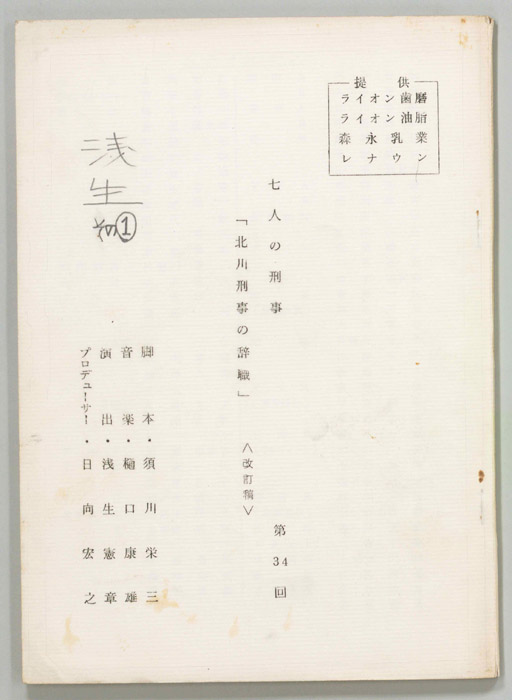 提供
ライオン歯磨
ライオン油脂
森永乳業
レナウン
七人の刑事
「北川刑事の辞職」
＜改訂稿＞
第34回
脚本・須川栄三
音楽・樋口康雄
演出・浅生憲章
プロデューサー・日向宏之
浅生
その①